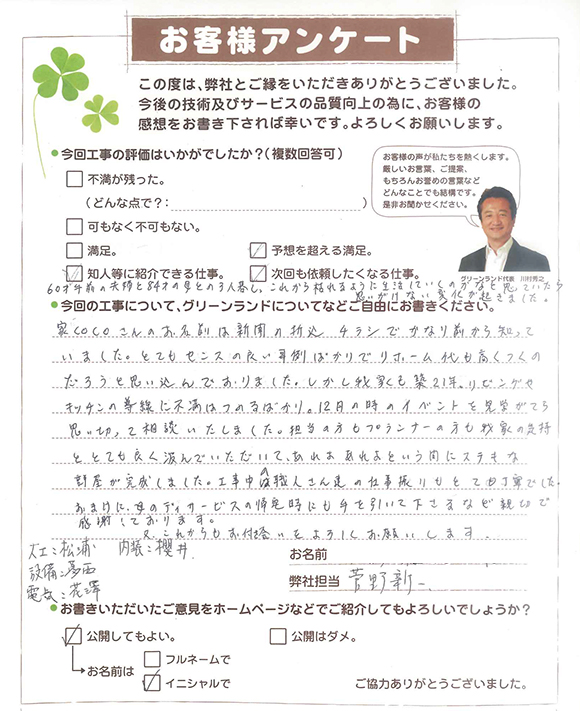 お客様アンケート
この度は、弊社とご縁をいただきありがとうございました。
今後の技術及びサービスの品質向上の為に、お客様の
感想をお書き下されば幸いです。よろしくお願いします。
今回工事の評価はいかがでしたか?(複数回答可)
お客様の声が私たちを熱くします。
厳しいお言葉、ご提案、
もちろんお誉めの言葉など
どんなことでも結構です。
是非お聞かせください。
不満が残った。
(どんな点で?: )
可もなく不可もない。
満足。
予想を超える満足。
知人等に紹介できる仕事。
次回も依頼したくなる仕事。
グリーンランド代表 川村秀之
60才手前の夫婦と84才の母との3人暮し、これから枯れるように生活していくのかなと思っていたら
思いがけない変化が起きました。
今回の工事について、グリーンランドについてなどご自由にお書きください。
家COCOさんのお名前は新聞の折込チラシでかなり前から知って
いました。とてもセンスの良い事例ばかりでリホーム代も高くつくの
だろうと思い込んでおりました。しかし我家も築21年。リビングや
キッチンの導線に不満はつのるばかり。12日の時のイベントを見学がてら
思い切って相談いたしました。担当の方もプランナーの方も我家の気持
ちとても良く汲んでいただいて、あれよあれよという間にステキな
部屋が完成しました。工事中の職人さん達の仕事振りもとても丁寧でした。
おまけに、母のディサービスの帰宅時にも手を引いて下さるなど親切で
感謝しております。
又、これからもお付合いをよろしくお願いします。
大工:松浦 内装:櫻井
設備:葛西
電気:花澤
お名前
弊社担当 菅野新一
お書きいただいたご意見をホームページなどでご紹介してもよろしいでしょうか?
公開してもよい。
公開はダメ。
お名前は
フルネームで
イニシャルで
ご協力ありがとうございました。